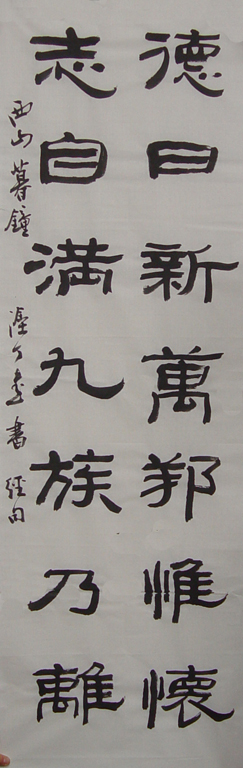 德日新萬邦惟懷
志自満九族乃離
西山暮鐘 書